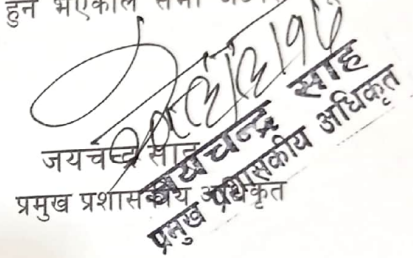 हुन भएकाले सभी
जयचन्द्र साह
प्रमुख प्रशासकीय अधिकृत
जयचन्द्र साह
प्रमुख प्रशासकीय अधिकृत